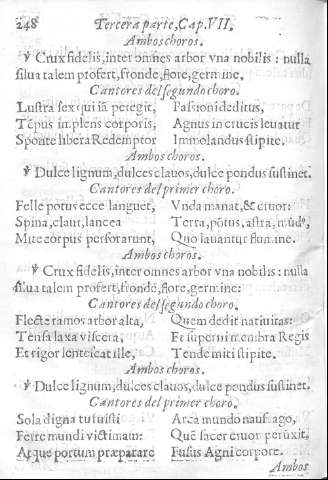 248 Tercera parte, Cap. VII.
Ambos choros.
℣ Crux fidelis, inter omnes arbor vna nobilis : nulla
silua talem profert, fronde, flore, germine.
Cantores del segundo choro.
Lustra sex qui iã peregit, Passioni deditus,
Tẽpus implens corporis, Agnus in crucis leuatur
Sponte libera Redemptor Immolandus stipite.
Ambos choros.
℣ Dulce lignum, dulces clauos, dulce pondus sustinet.
Cantores del primer choro.
Felle potus ecce languet, Vnda manat, & cruor:
Spina, claui, lancea Terra, põtus, astra, mũdꝰ,
Mite corpus perforarunt, Quo lauantur flumine.
Ambos choros.
℣ Crux fidelis, inter omnes arbor vna nobilis : nulla
silua talem profert, fronde, flore, germine:
Cantores del segundo choro.
Flecte ramos arbor alta, Quem dedit natiuitas:
Tensa laxa viscera, Et superni membra Regis
Et rigor lentescat ille, Tende miti stipite.
Ambos choros.
℣ Dulce lignum, dulces clauos, dulce pondus sustinet.
Cantores del primer choro.
Sola digna tu fuisti Arca mundo naufrago,
Ferre mundi victimam: Quẽ sacer cruor perũxit,
Atque portum præparare Fusus Agni corpore.
Ambos